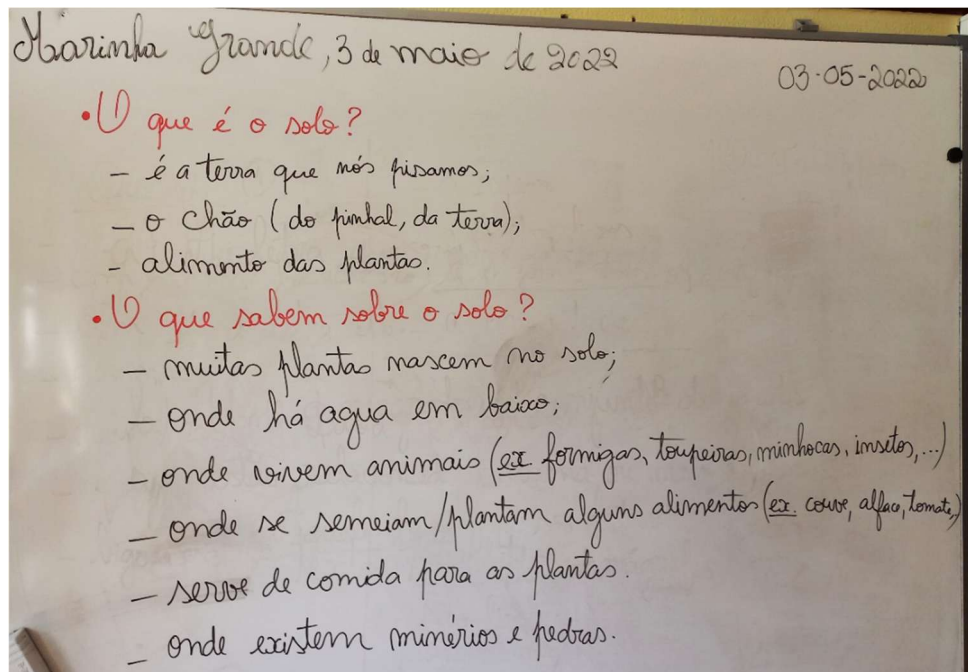 Marinha Grande, 3 de maio de 2022
03-05-2022
• O que é o solo?
– é a terra que nós pisamos;
– o chão (do pinhal, da terra);
– alimento das plantas.
• O que sabem sobre o solo?
– muitas plantas nascem no solo;
– onde há agua em baixo;
– onde vivem animais (ex. formigas, toupeiras, minhocas, insetos,...)
– onde se semeiam/plantam alguns alimentos (ex. couve, alface, tomate,)
– serve de comida para as plantas.
– onde existem minérios e pedras.